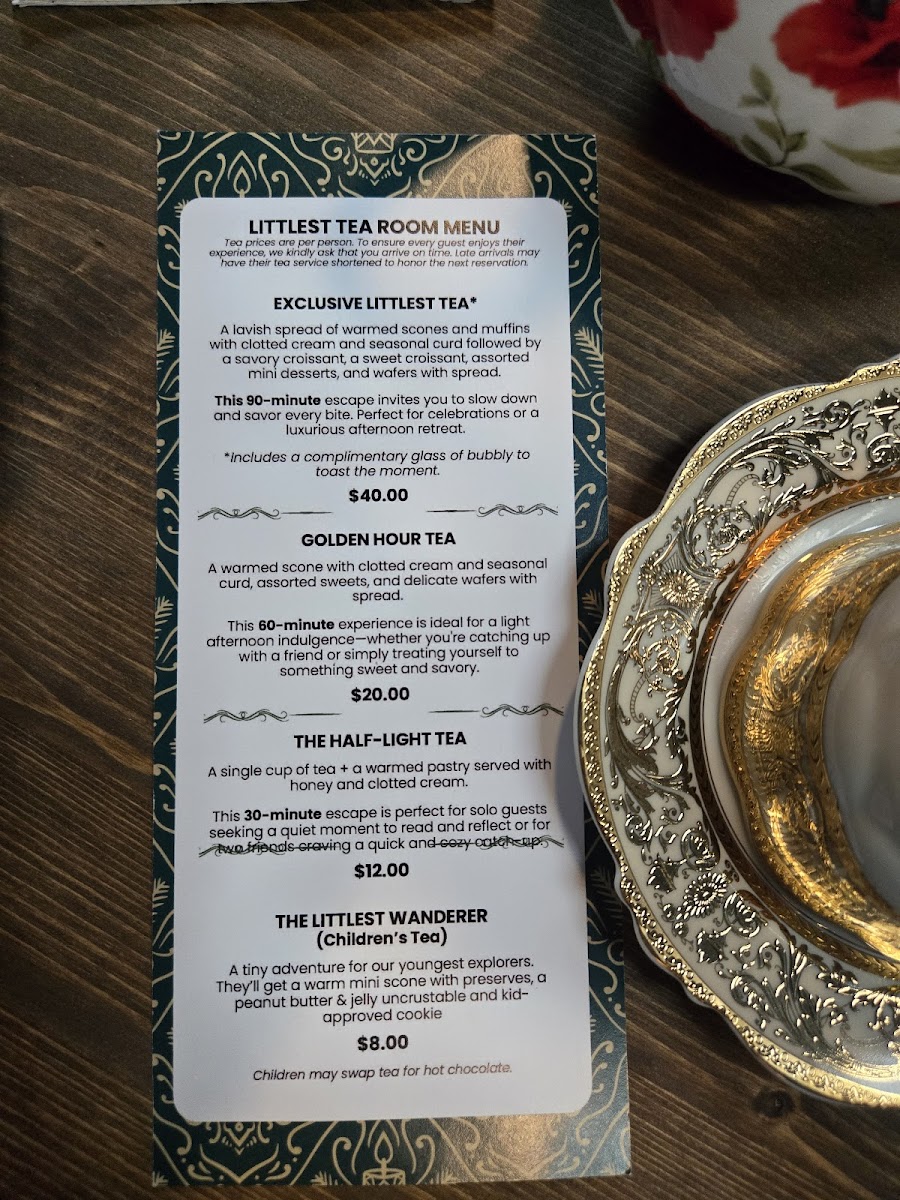 LITTLEST TEA ROOM MENU
Tea prices are per person. To ensure every guest enjoys their
experience, we kindly ask that you arrive on time. Late arrivals may
have their tea service shortened to honor the next reservation.
EXCLUSIVE LITTLEST TEA*
A lavish spread of warmed scones and muffins
with clotted cream and seasonal curd followed by
a savory croissant, a sweet croissant, assorted
mini desserts, and wafers with spread.
This 90-minute escape invites you to slow down
and savor every bite. Perfect for celebrations or a
luxurious afternoon retreat.
*Includes a complimentary glass of bubbly to
toast the moment.
$40.00
GOLDEN HOUR TEA
A warmed scone with clotted cream and seasonal
curd, assorted sweets, and delicate wafers with
spread.
This 60-minute experience is ideal for a light
afternoon indulgence—whether you're catching up
with a friend or simply treating yourself to
something sweet and savory.
$20.00
THE HALF-LIGHT TEA
A single cup of tea + a warmed pastry served with
honey and clotted cream.
This 30-minute escape is perfect for solo guests
seeking a quiet moment to read and reflect or for
two friends craving a quick and cozy catch-up.
$12.00
THE LITTLEST WANDERER
(Children's Tea)
A tiny adventure for our youngest explorers.
They'll get a warm mini scone with preserves, a
peanut butter & jelly uncrustable and kid-
approved cookie
$8.00
Children may swap tea for hot chocolate.